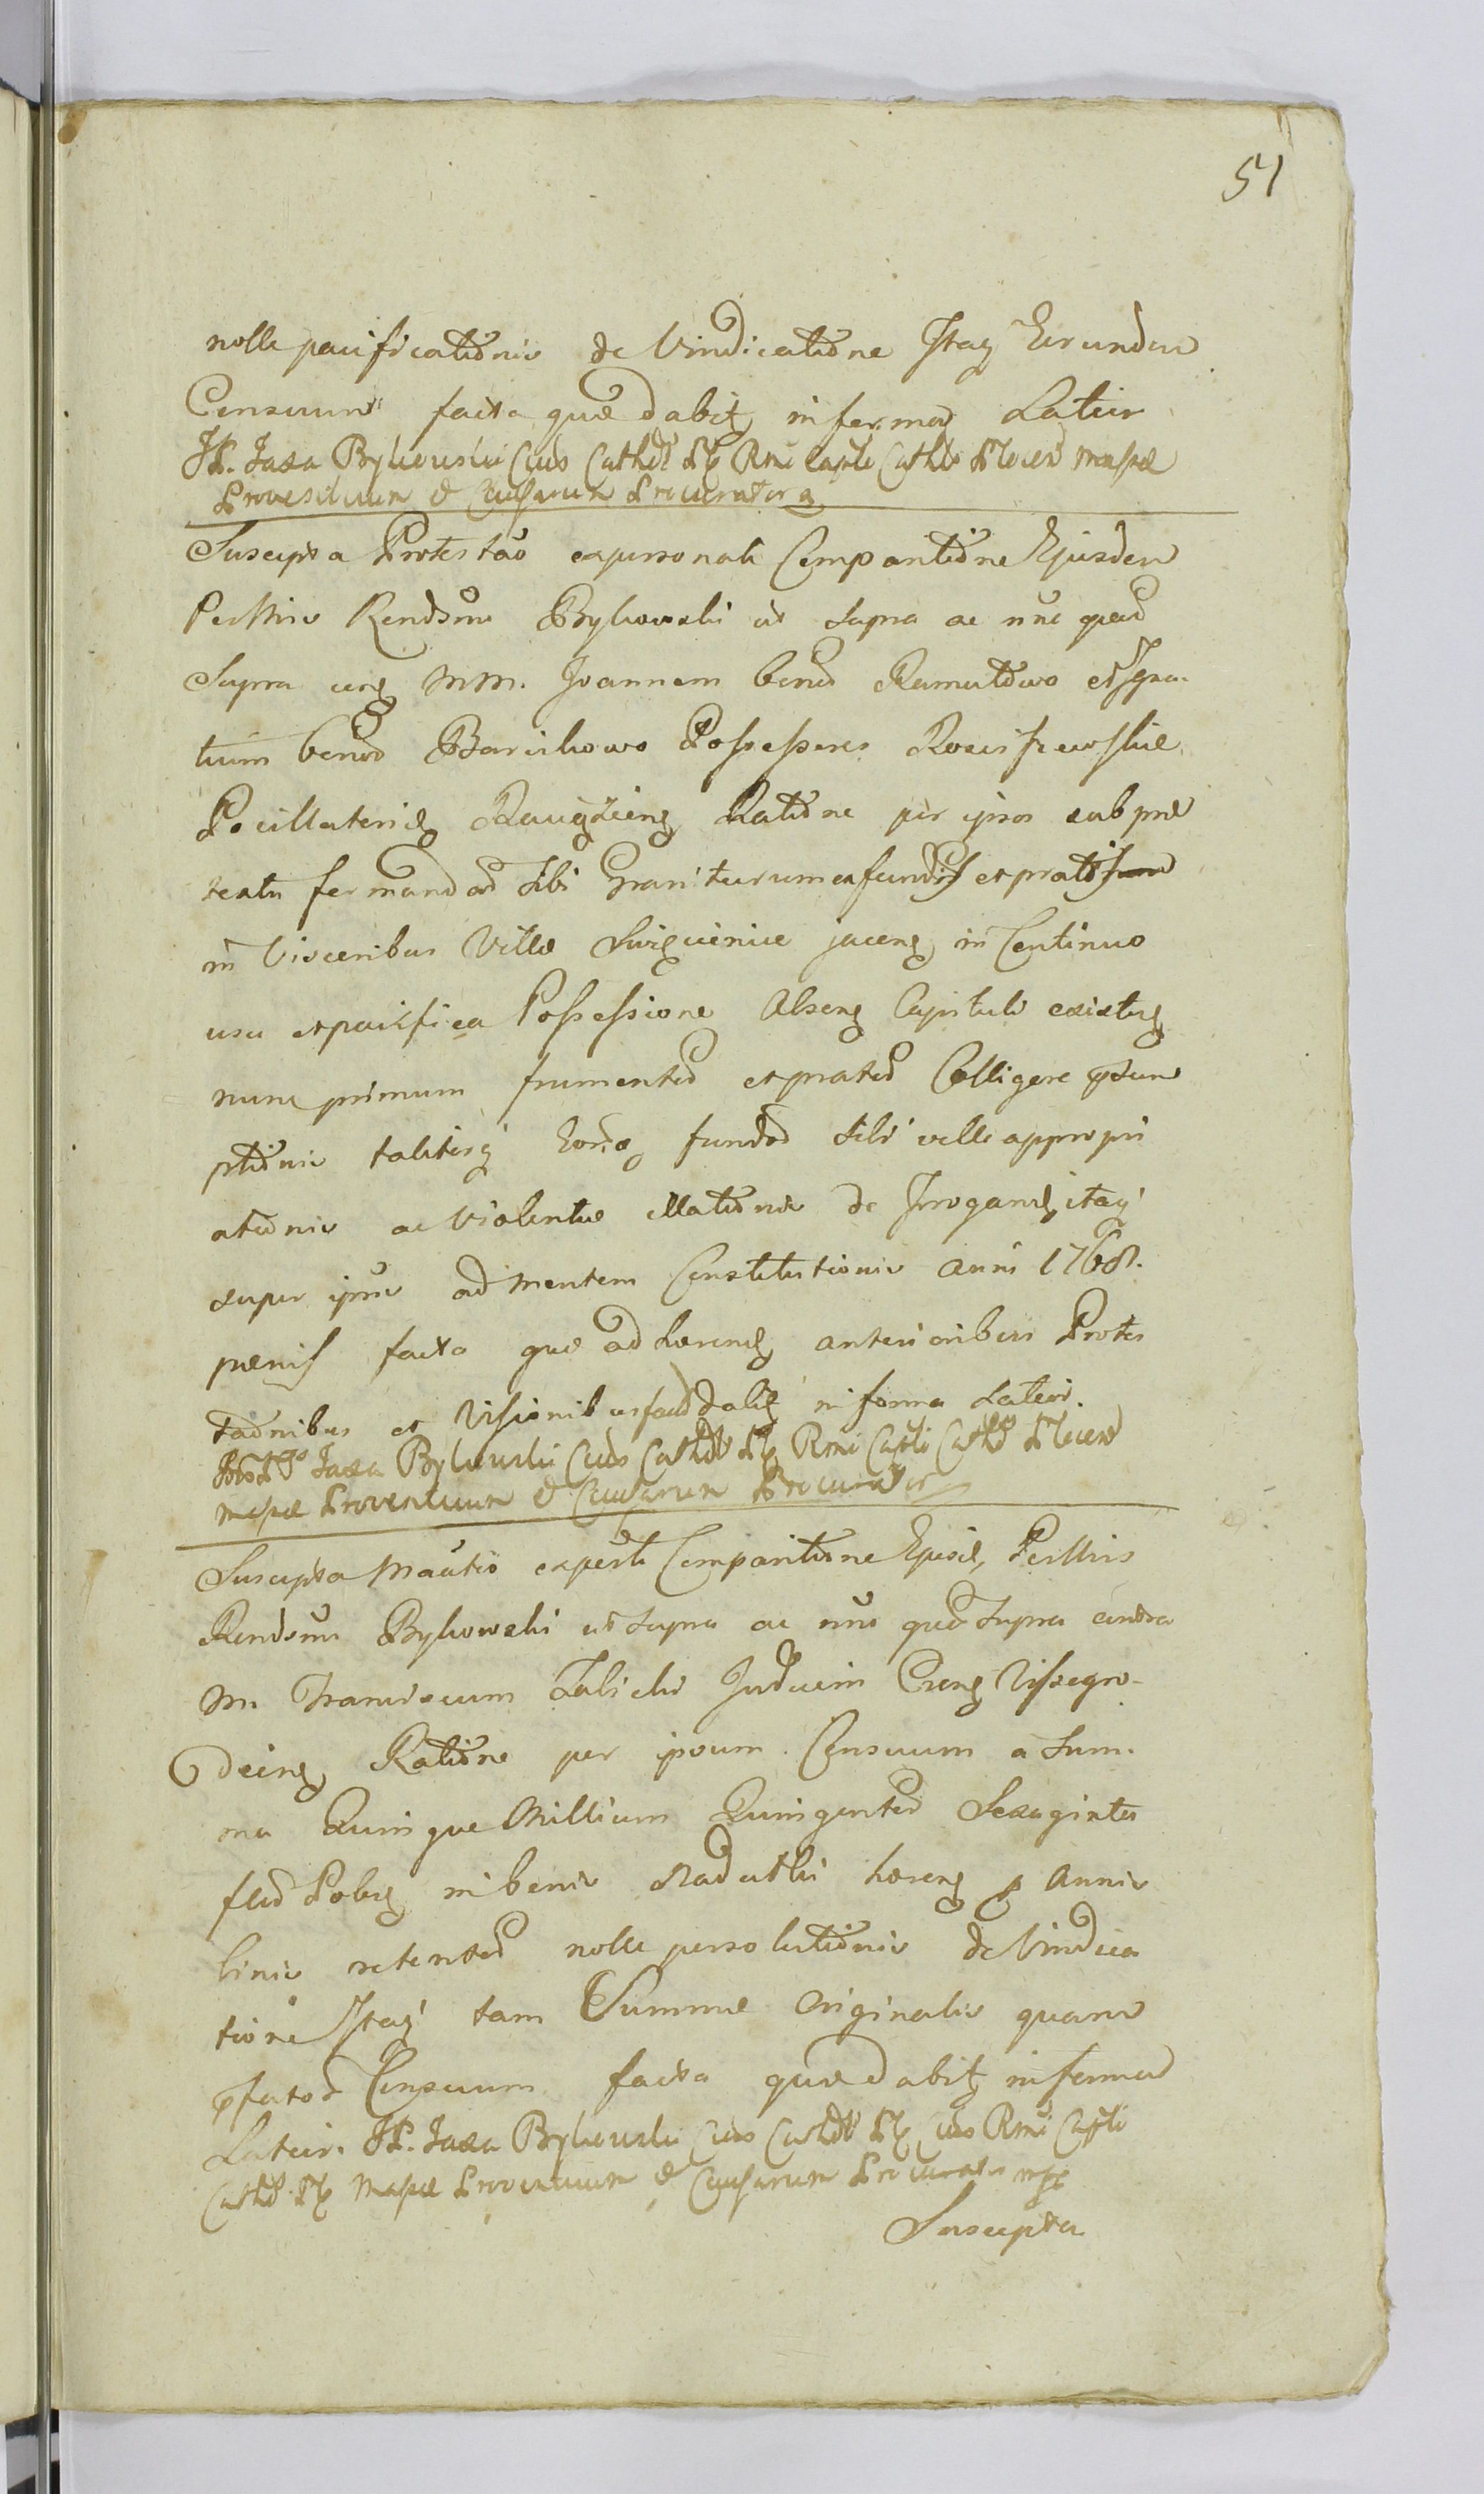 51
nolle pacificationis de Vindicatione Itaq Eorundem
Censuum facta quæ dabitʒ in forma Latior
JP. Jaxa Bykowski Cus Cathdr Plʒ Rmi Capli Cathis Plocen Massæ
Proventuum & Causarum Procurator
Suscepta Protestao expersonali Comparitione Ejusdem
PerIllris Rendsmi Bykowski ut supra ac nne quo
Supra cong MM. Joannem bonor Ramutowo et Igna-
tium bonor Barcikowo Possessores Rosciszewskie
Pocillatorid Raciążieng Ratione per ipsos sub præ
textu formandor sibi Graniturum ex fundis et pratis
in visceribus Villæ Swięcienice jaceng in Continuo
usu et pacifica Possessione Abseng Capituli existeng
nunc primum frumentor et prator Colligere
ptionis taliterq fundor sibi velle appropri
ationis ac Violentiæ illationis de Irrogand itaq
super ipsos ad mentem Constitutionis anni 1768.
pænis facta quæ adhærend anterioribus Protes
taonibus et Visionibus dabitʒ in forma Latiori.
Jaxa Bykowski Cus Cathdr Plʒ Rmi Capli Cathis Plocen
Massæ Proventuum & Causarum Procurator
Suscepta Mantio experli Comparitione Ejusd, PerIllris
Rendsmi Bykowski ut supra ac nne quo supra contra
M. Franciscum Zalicki Judicem Creng Wyszegro-
deing Ratione per ipsum Censuum a Sum-
ma Quinque Millium Quingentor Sexaginta
flor Polʒ in bonis Radutki hæreng p Annis
binis retentor nolle persolutionis de Vindica
tione Itaq tam Summæ Originalis quam
pfator Censuum facta quæ dabitʒ in forma
Latior. JP. Jaxa Bykowski Cus Cathdr Plʒ Rmi Capli
Cathd Plʒ Massæ Proventuum & Causarum Procurator mpp
Suscepta